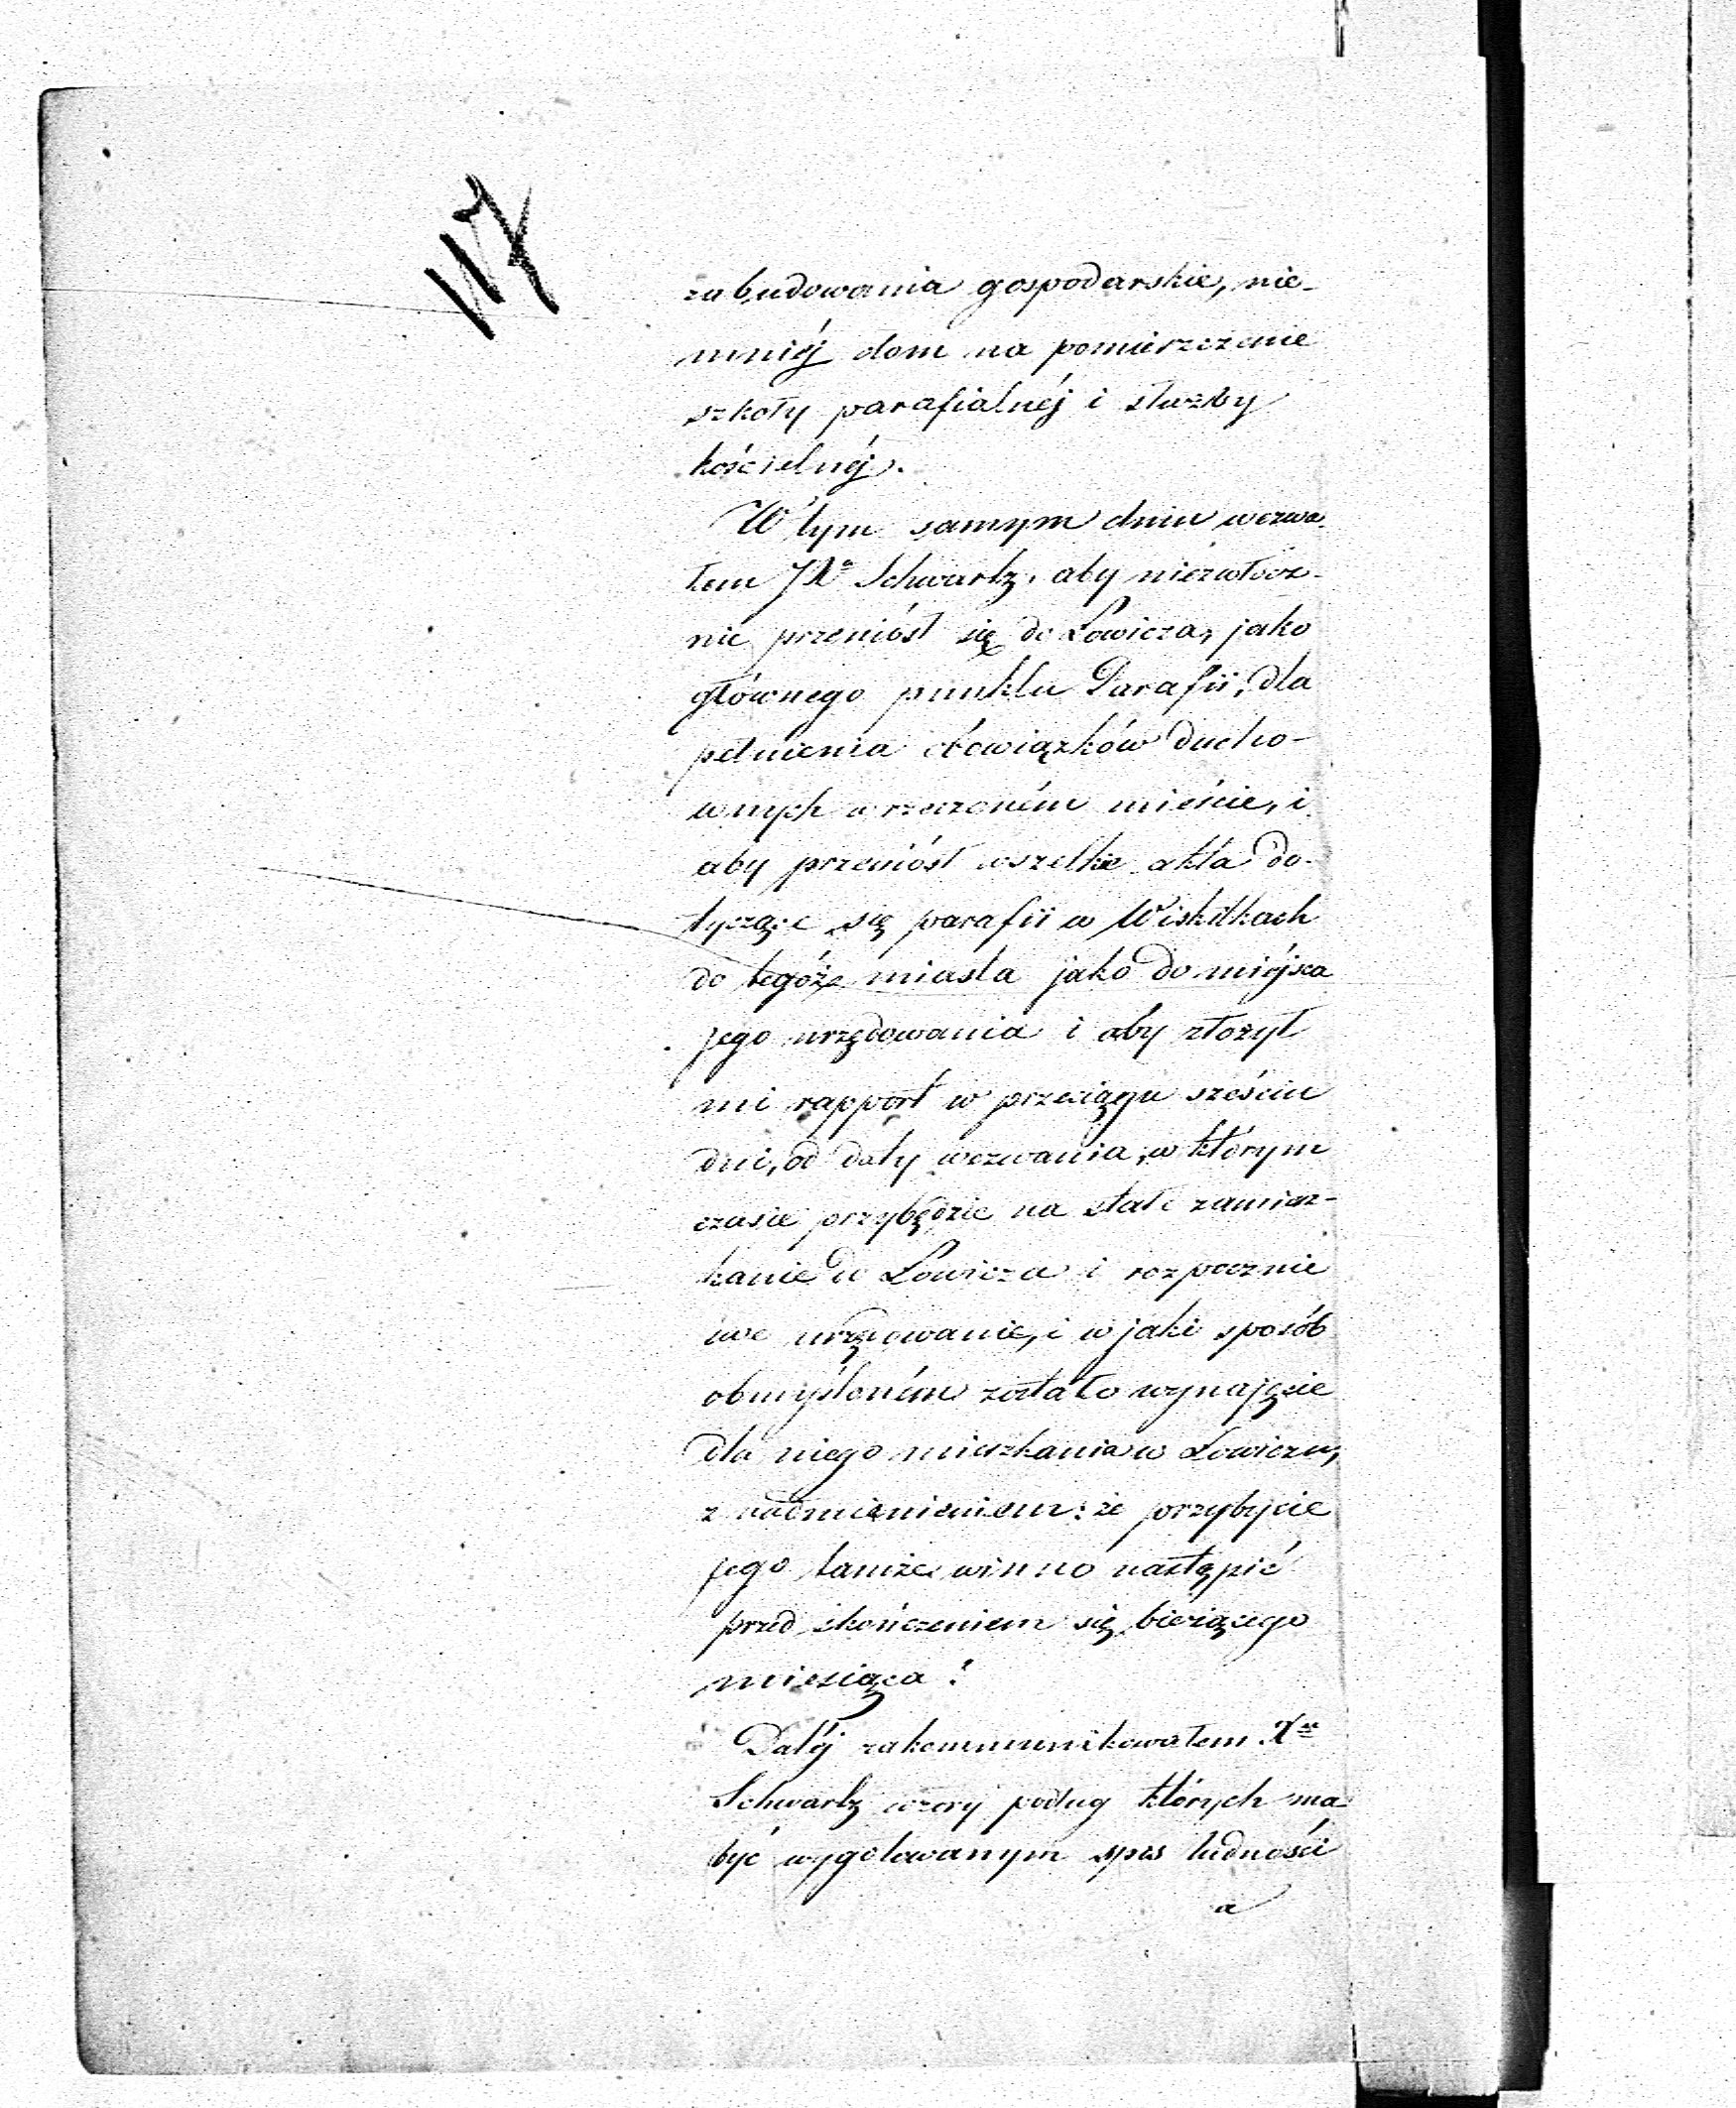 117
zabudowania gospodarskie, nie-
mniéj dom na pomieszczenie
szkoły parafialnéj i służby
kościelnéj.
W tym samym dniu wezwa-
łem Schwartz, aby niezwłocz-
nie przeniósł się do Łowicza, jako
głównego punktu Parafii, dla
pełnienia obowiązków ducho-
wnych w rzeczoném mieście, i
aby przeniósł wszelkie akta do-
tyczące się parafii w Wiskitkach
do tegóż miasta jako do miéjsca
jego urzędowania i aby złożył
mi rapport w przeciągu sześciu
dni, od daty wezwania, w którym
czasie przybędzie na stałe zamiesz-
kanie do Łowicza i rozpocznie
swe urzędowanie, i w jaki sposób
obmyśloném zostało wynajęcie
dla niego mieszkania w Łowiczu,
z nadmienieniem: że przybycie
jego tamże winno nastąpić
przed skończeniem się bieżącego
miesiąca.
Daléj zakommunikowałem
Schwartz wzory podług których ma
być wygotowanym spis ludności
a